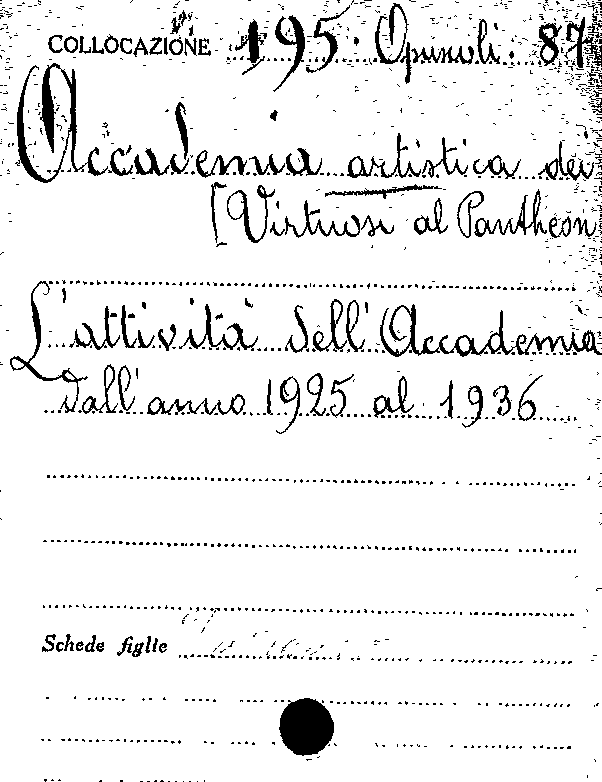 COLLOCAZIONE 195. Opuscoli. 87
Accademia artistica dei
[Virtuosi al Pantheon
L'attività dell'Accademia
dall'anno 1925 al 1936
Schede figlie